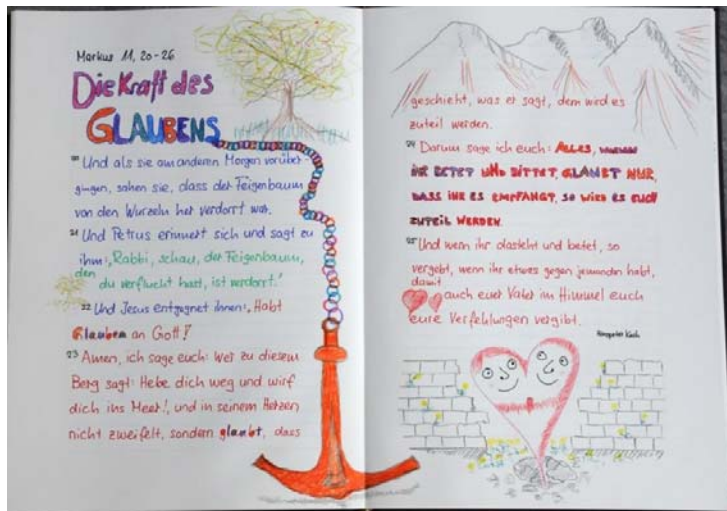 Markus 11, 20-26
Die Kraft des
GLAUBENS
20 Und als sie am anderen Morgen vorüber-
gingen, sahen sie, dass der Feigenbaum
von den Wurzeln her verdorrt war.
21 Und Petrus erinnert sich und sagt zu
ihm: „Rabbi, schau, der Feigenbaum,
den
du verflucht hast, ist verdorrt.“
22 Und Jesus entgegnet ihnen: „Habt
Glauben an Gott!
23 Amen, ich sage euch: Wer zu diesem
Berg sagt: Hebe dich weg und wirf
dich ins Meer!, und in seinem Herzen
nicht zweifelt, sondern glaubt, dass
geschieht, was er sagt, dem wird es
zuteil werden.
24 Darum sage ich euch: ALLES,
IHR BETET UND BITTET, GLAUBT NUR,
DASS IHR ES EMPFANGT, SO WIRD ES EUCH
ZUTEIL WERDEN.
25 Und wenn ihr dasteht und betet, so
vergebt, wenn ihr etwas gegen jemanden habt,
damit
auch euer Vater im Himmel euch
eure Verfehlungen vergibt.